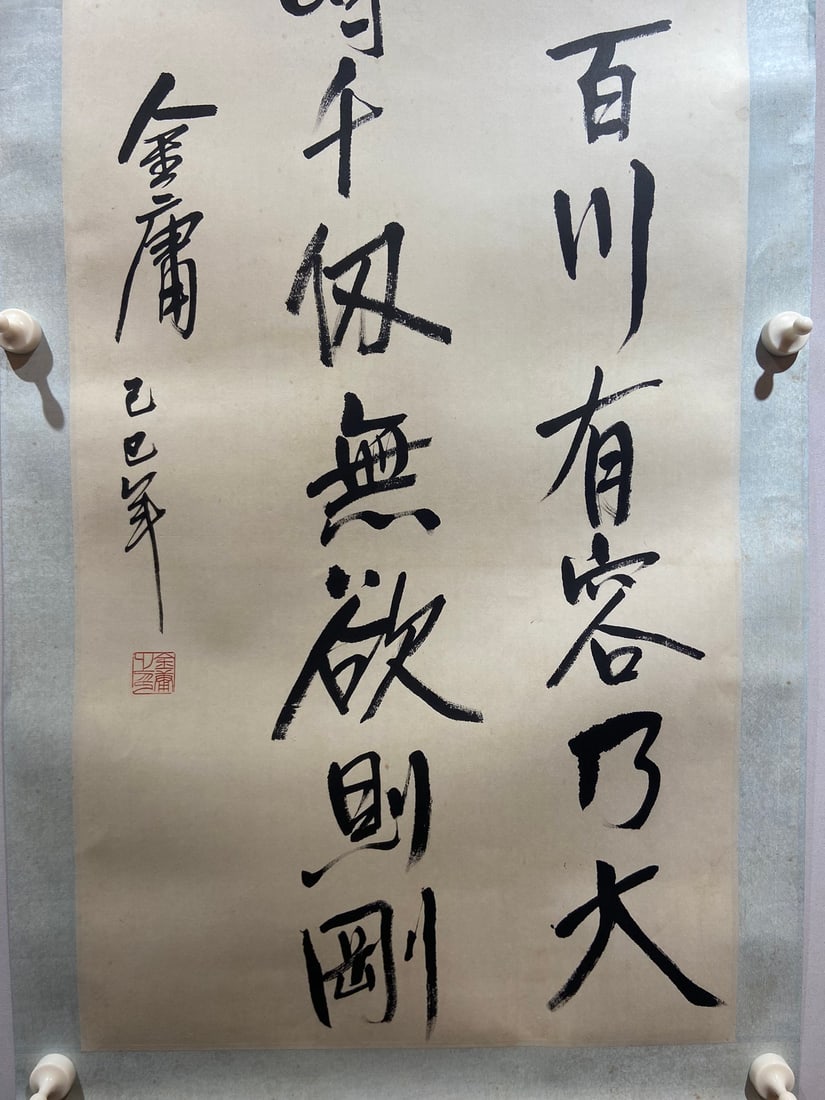 百川有容乃大
千仞無欲則剛
金庸
己巳年
金庸之印